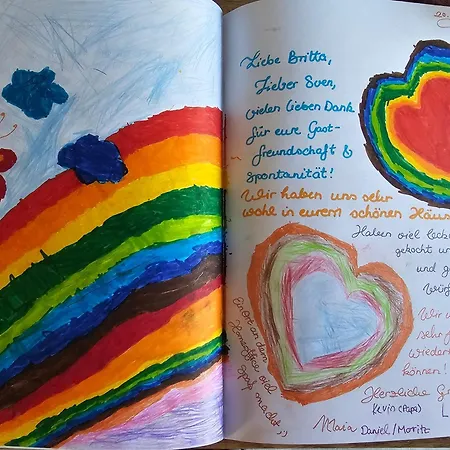 20.
Liebe Britta,
Lieber Sven,
vielen lieben Dank
für eure Gast-
freundschaft &
Spontanität!
Wir haben uns sehr
wohl in eurem schönen Häus
Haben viel leck
gekocht un
und g
Würf
Wir w
sehr f
wieder
können!
Herzliche Gr
Kevin (Papa) L
Maia Daniel/Moritz
Ein Ort an dem
Homeoffice viel
Spaß macht ;)